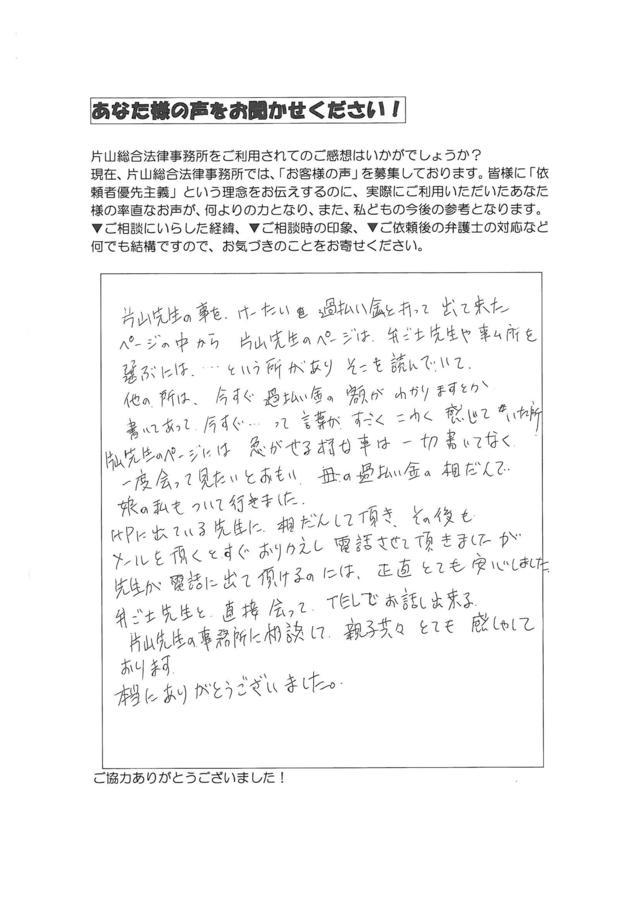 あなた様の声をお聞かせください！
片山総合法律事務所をご利用されてのご感想はいかがでしょうか？
現在、片山総合法律事務所では、「お客様の声」を募集しております。皆様に「依
頼者優先主義」という理念をお伝えするのに、実際にご利用いただいたあなた
様の率直なお声が、何よりの力となり、また、私どもの今後の参考となります。
▼ご相談にいらした経緯、▼ご相談時の印象、▼ご依頼後の弁護士の対応など
何でも結構ですので、お気づきのことをお寄せください。
片山先生の事を、けーたいで過払い金とあって出て来た
ページの中から 片山先生のページは、弁ご士先生や事ム所を
選ぶには、…という所があり そこを読んでいて、
他の所は、今すぐ過払い金の額がわかりますとか
書いてあって、今すぐ…って言葉がすごくこわく感じていた所
片山先生のページには 急がせる様な事は一切書いてなく、
一度会って見たいとおもい、母の過払い金の相だんで
娘の私もついて行きました。
HPに出ている先生に、相だんして頂き、その後も
メールを頂くとすぐおりかえし電話させて頂きましたが
先生が電話に出て頂けるのには、正直とても安心しました。
弁ご士先生と、直接会って、TELでお話し出来る。
片山先生の事務所に相談して、親子共々とても感しゃして
おります。
本当にありがとうございました。
ご協力ありがとうございました！